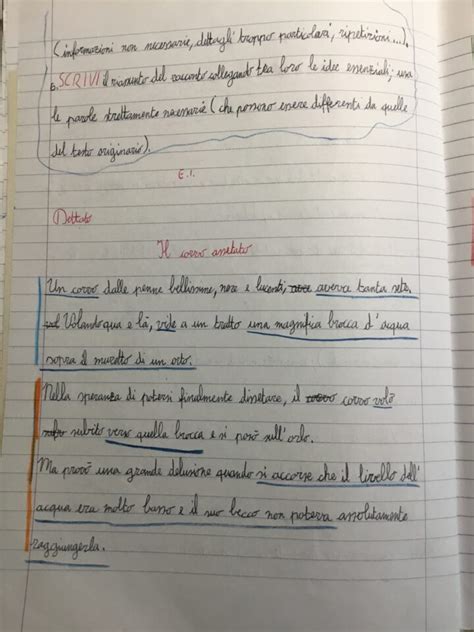 (informazioni non necessarie, dettagli troppo particolari, ripetizioni...).
5. SCRIVI il riassunto del racconto collegando tra loro le idee essenziali; usa
le parole strettamente necessarie (che possono essere differenti da quelle
del testo originario).
E.I.
Dettato
Il corvo assetato
Un corvo dalle penne bellissime, nere e lucenti, aveva tanta sete.
Volando qua e là, vide a un tratto una magnifica brocca d'acqua
sopra il muretto di un orto.
Nella speranza di potersi finalmente dissetare, il corvo volò
subito verso quella brocca e si posò sull'orlo.
Ma provò una grande delusione quando si accorse che il livello dell'
acqua era molto basso e il suo becco non poteva assolutamente
raggiungerla.